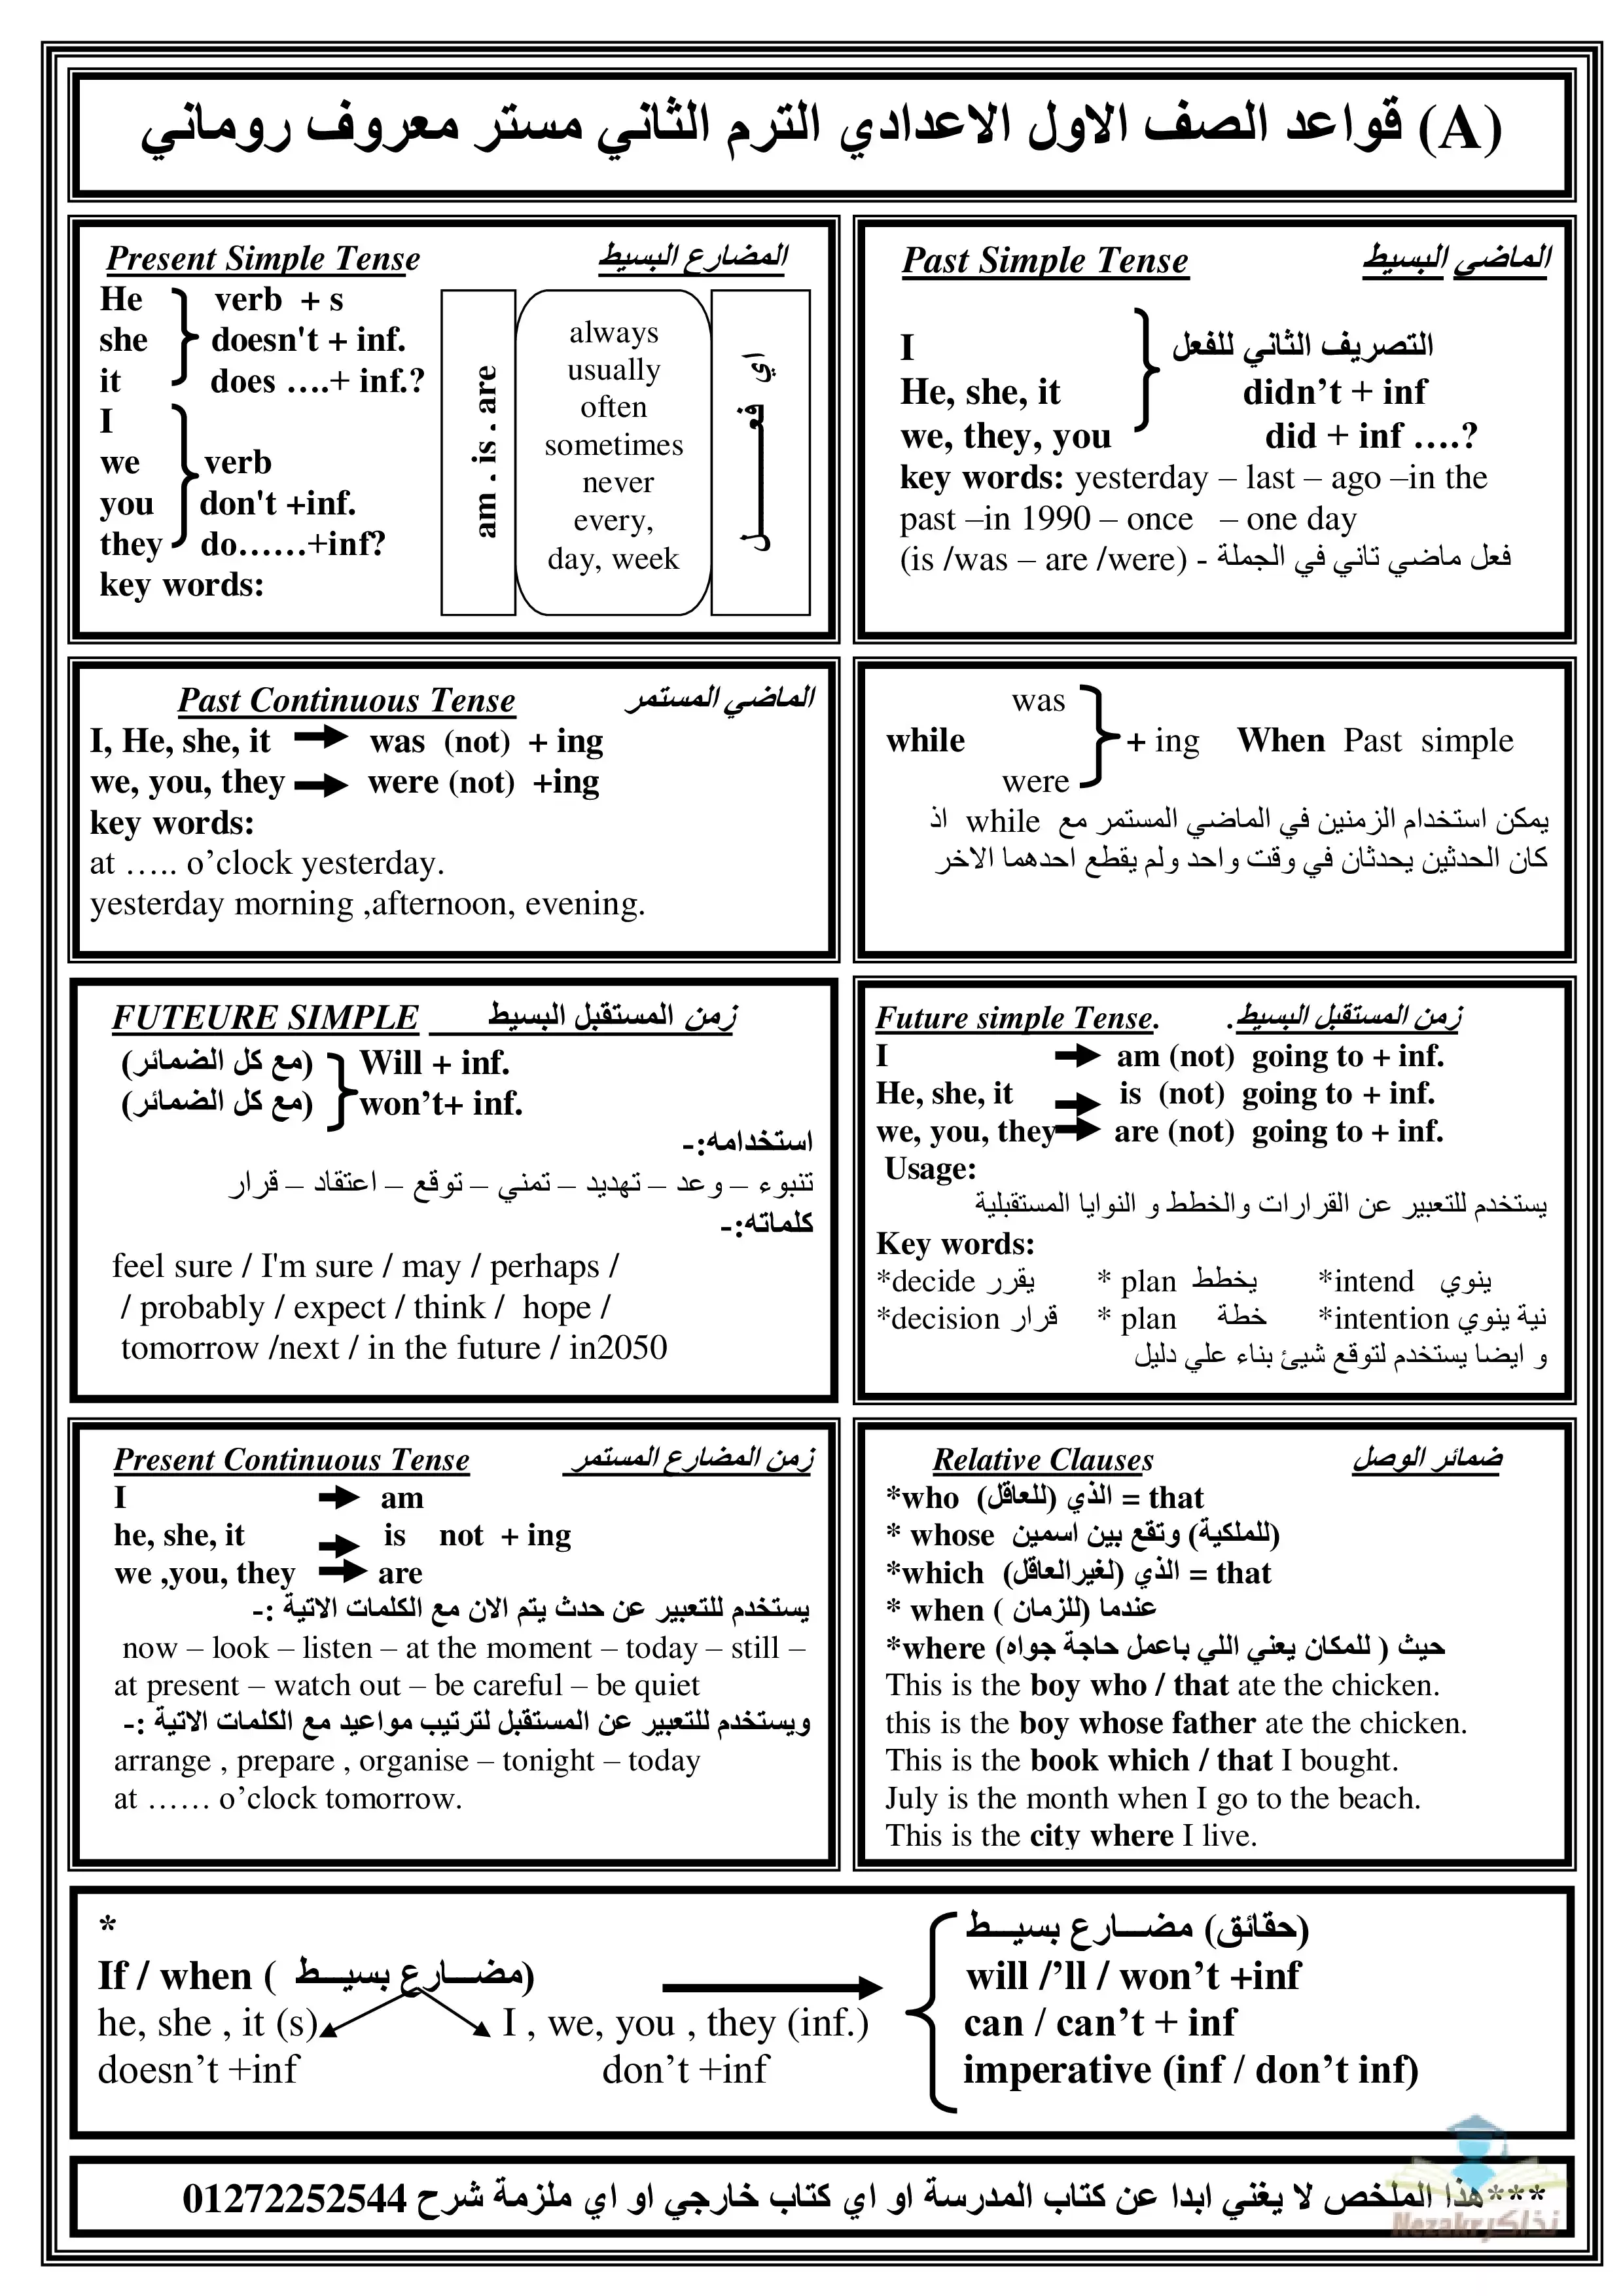 (A) قواعد الصف الاول الاعدادي الترم الثاني مستر معروف روماني
Present Simple Tense المضارع البسيط
He verb + s
she doesn't + inf.
it does ….+ inf.?
I
we verb
you don't +inf.
they do……+inf?
key words:
am . is . are
always
usually
often
sometimes
never
every,
day, week
اي فعـــــــل
Past Simple Tense الماضي البسيط
I التصريف الثاني للفعل
He, she, it didn’t + inf
we, they, you did + inf ….?
key words: yesterday – last – ago –in the
past –in 1990 – once – one day
(is /was – are /were) - فعل ماضي تاني في الجملة
Past Continuous Tense الماضي المستمر
I, He, she, it was (not) + ing
we, you, they were (not) +ing
key words:
at ….. o’clock yesterday.
yesterday morning ,afternoon, evening.
was
while + ing When Past simple
were
يمكن استخدام الزمنين في الماضي المستمر مع while اذ
كان الحدثين يحدثان في وقت واحد ولم يقطع احدهما الاخر
FUTEURE SIMPLE زمن المستقبل البسيط
(مع كل الضمائر) Will + inf.
(مع كل الضمائر) won’t+ inf.
استخدامه:-
تنبوء – وعد – تهديد – تمني – توقع – اعتقاد – قرار
كلماته:-
feel sure / I'm sure / may / perhaps /
/ probably / expect / think / hope /
tomorrow /next / in the future / in2050
Future simple Tense. زمن المستقبل البسيط.
I am (not) going to + inf.
He, she, it is (not) going to + inf.
we, you, they are (not) going to + inf.
Usage:
يستخدم للتعبير عن القرارات والخطط و النوايا المستقبلية
Key words:
*decide يقرر * plan يخطط *intend ينوي
*decision قرار * plan خطة *intention نية ينوي
و ايضا يستخدم لتوقع شيئ بناء علي دليل
Present Continuous Tense زمن المضارع المستمر
I am
he, she, it is not + ing
we ,you, they are
يستخدم للتعبير عن حدث يتم الان مع الكلمات الاتية :-
now – look – listen – at the moment – today – still –
at present – watch out – be careful – be quiet
ويستخدم للتعبير عن المستقبل لترتيب مواعيد مع الكلمات الاتية :-
arrange , prepare , organise – tonight – today
at …… o’clock tomorrow.
Relative Clauses ضمائر الوصل
*who الذي (للعاقل) = that
* whose (للملكية) وتقع بين اسمين
*which الذي (لغيرالعاقل) = that
* when عندما (للزمان )
*where حيث ( للمكان يعني اللي باعمل حاجة جواه)
This is the boy who / that ate the chicken.
this is the boy whose father ate the chicken.
This is the book which / that I bought.
July is the month when I go to the beach.
This is the city where I live.
*
If / when ( مضـــارع بسيـــط)
he, she , it (s) I , we, you , they (inf.)
doesn’t +inf don’t +inf
(حقائق) مضـــارع بسيـــط
will /’ll / won’t +inf
can / can’t + inf
imperative (inf / don’t inf)
***هذا الملخص لا يغني ابدا عن كتاب المدرسة او اي كتاب خارجي او اي ملزمة شرح 01272252544
Nezakr نذاكر